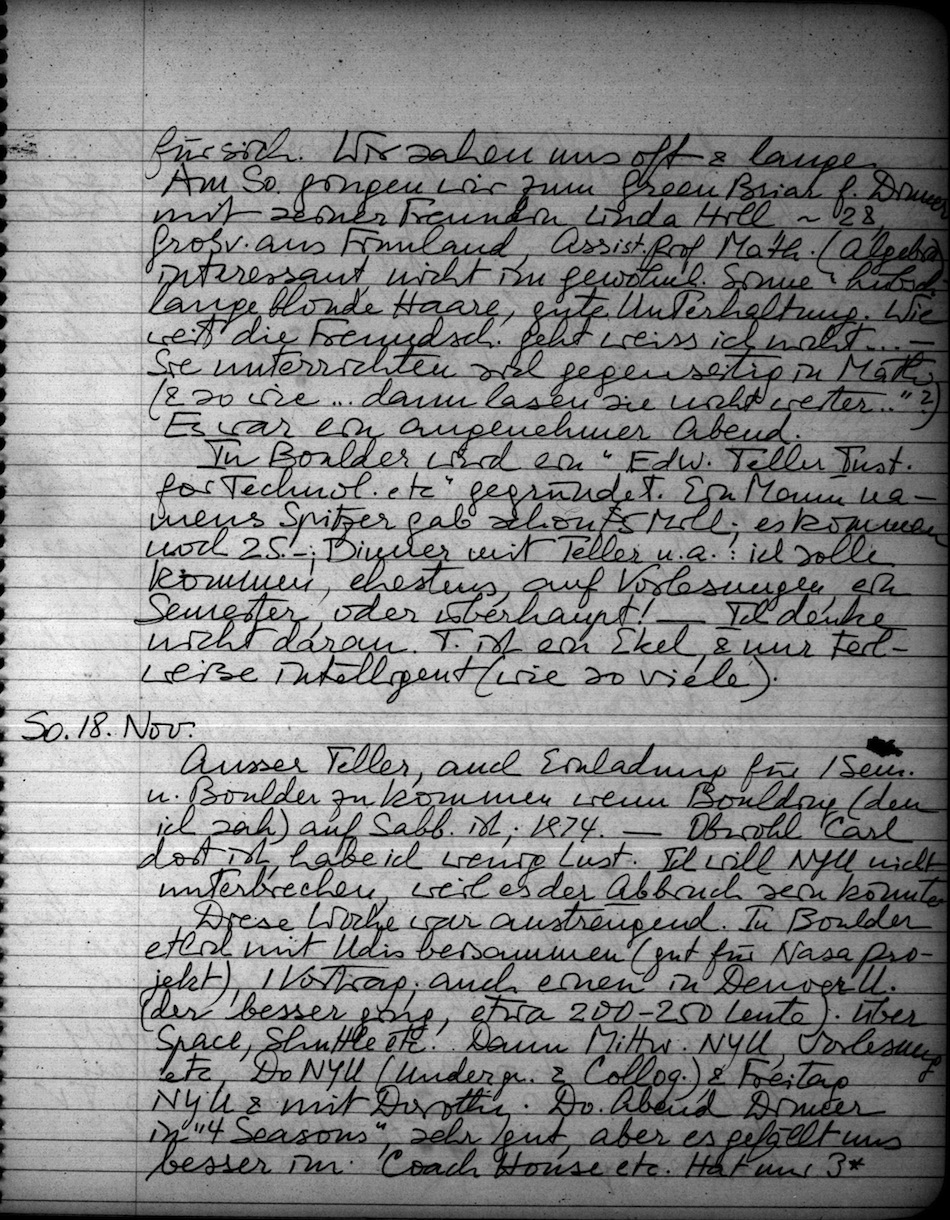 für sich. Wir sahen uns oft & lange.
Am So. gingen wir zum Green Briar f. Dinner
mit seiner Freundin Linda Hill, ~ 28,
Großv. aus Finnland, Assist. Prof Math. (Algebra)
interessant, nicht im gewöhnl. Sinne hübsch
lange blonde Haare, gute Unterhaltung. Wie
weit die Freundsch. geht weiss ich nicht... —
Sie unterrichten sich gegenseitig in Math.
(& so wie ... dann lasen sie nicht weiter.." ?)
Es war ein angenehmer Abend.
In Boulder wird ein "Edw. Teller Inst.
for Technol. etc" gegründet. Ein Mann na-
mens Spitzer gab schon Mill; es kommen
noch 25.-; Dinner mit Teller u.a.: ich solle
kommen, ehestens, auf Vorlesungen, ein
Semester, oder überhaupt! — Ich denke
nicht daran. T. ist ein Ekel, & nur teil-
weise intelligent (wie so viele).
So. 18. Nov.
Ausser Teller, auch Einladung für 1 Sem.
n. Boulder zu kommen wenn Boulding (den
ich sah) auf Sabb. ist, 1974. — Obwohl Carl
dort ist, habe ich wenig Lust. Ich will NYU nicht
unterbrechen, weil es der Abbruch sein könnte
Diese Woche war anstrengend. In Boulder
etlich mit Udis beisammen (gut für Nasa pro-
jekt), 1 Vortrag; auch einen in Denver U.
(der besser ging, etwa 200-250 Leute). über
Space, Shuttle etc. Dann Mittw. NYU, Vorlesung
etc, Do NYU (Undergr. & Colloq.) & Freitag
NYU & mit Dorothy. Do. Abend Dinner
in "4 Seasons", sehr gut, aber es gefällt uns
besser im Coach House etc. Hat nur 3*